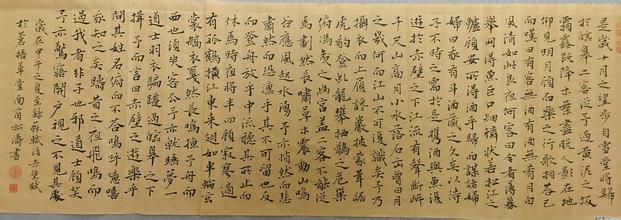 是歲十月之望步自雪堂將歸
於臨皋二客從予過黃泥之坂
霜露既降木葉盡脫人影在地
仰見明月顧而樂之行歌相荅已
而嘆曰有客無酒有酒無肴月白
風清如此良夜何客曰今者薄暮
舉網得魚巨口細鱗狀若松江之
鱸顧安所得酒乎歸而謀諸婦
婦曰我有斗酒藏之久矣以待
子不時之需於是攜酒與魚復
遊於赤壁之下江流有聲斷岸
千尺山高月小水落石出曾日月
之幾何而江山不可復識矣予乃
攝衣而上履巉巖披蒙茸踞
虎豹登虬龍攀栖鶻之危巢
俯馮夷之幽宮蓋二客不能從
焉劃然長嘯草木震動山鳴
谷應風起水湧予亦悄然而悲
肅然而恐凜乎其不可留也反
而登舟放乎中流聽其所止而
休焉時夜將半四顧寂寥適
有孤鶴橫江東來翅如車輪玄
裳縞衣戛然長鳴掠予舟而
西也須臾客去予亦就睡夢一
道士羽衣蹁躚過臨皋之下
揖予而言曰赤壁之遊樂乎
問其姓名俯而不答嗚呼噫嘻
我知之矣疇昔之夜飛鳴而
過我者非子也耶道士顧笑
予亦驚寤開戶視之不見其處
歲在甲午之夏至錄蘇軾後赤壁賦
於蒼梧草堂南窗松濤書